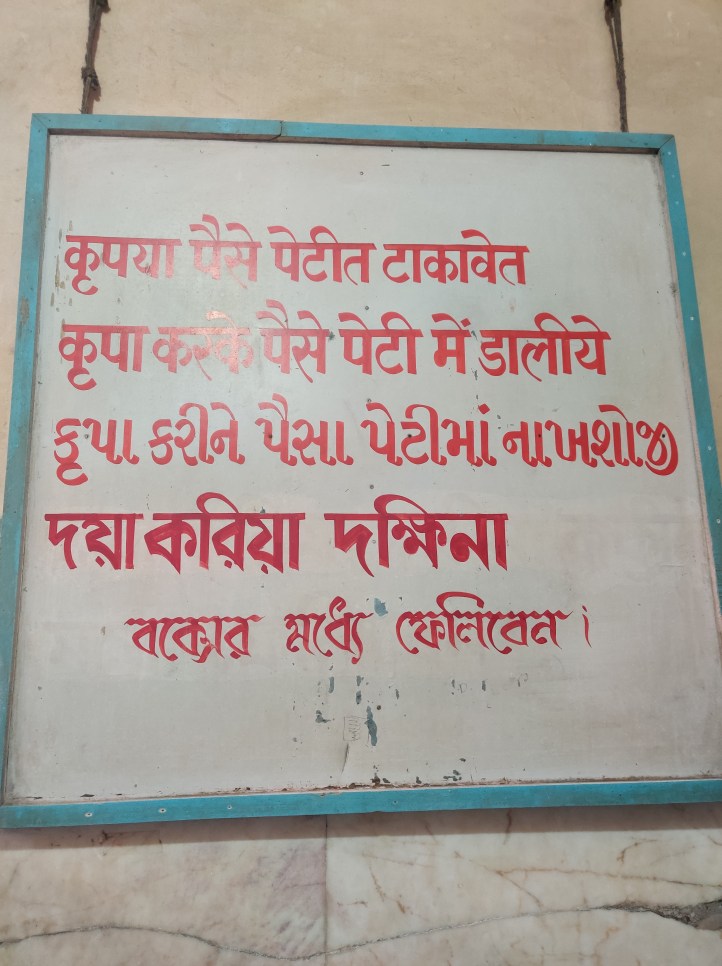 कृपया पैसे पेटीत टाकावेत
कृपा करके पैसे पेटी में डालीये
કૃપા કરીને પૈસા પેટીમાં નાખશોજી
দয়া করিয়া দক্ষিনা
বক্সের মধ্যে ফেলিবেন।